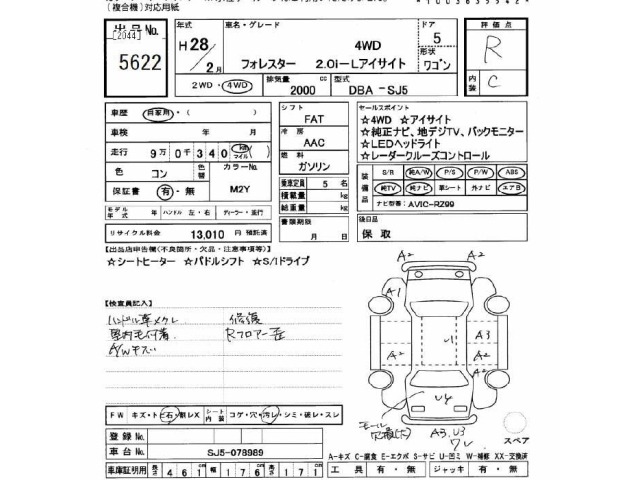 (複合機)対応用紙
出品No.
[2044]
5622
年式
H28
2月
車名・グレード
4WD
フォレスター 2.0i-Lアイサイト
ドア
5
形状
ワゴン
評価点
R
内装
C
2WD・4WD
排気量
2000 cc
型式
DBA -SJ5
車歴
自家用・( )
車検 年 月
走行 9万 0千 340 km マイル
色
コン
色替
カラーNo.
M2Y
保証書
有・無
モデル年式 年
ハンドル 左・右
ディーラー・並行
リサイクル料金 13,010 円 預託済
シフト
FAT
冷房
AAC
燃料
ガソリン
乗車定員 5 名
積載量 kg
総重量 kg
書類期限
月 日
セールスポイント
☆4WD ☆アイサイト
☆純正ナビ、地デジTV、バックモニター
☆LEDヘッドライト
☆レーダークルーズコントロール
装備品
S/R 純A/W P/S P/W ABS
純TV 純ナビ 革シート 外ナビ エアB
ナビ型番: AVIC-RZ99
後日品
保 取
【出品店申告欄(不良箇所・欠品・注意事項等)】
☆シートヒーター ☆パドルシフト ☆S/Iドライブ
【検査員記入】
ハンドル革メクレ
室内毛付着
A/Wキズ
修復
Rフロアー歪
A2 A2
A1
A2 A2
U1
A3
A2
A2 A2
U4
A3,U3
ワレ
スペア
FW キズ・ト・石・割レX
シート内装 コゲ・穴・汚レ・シミ・破レ・スレ
登録No.
車台No. SJ5-078989
車庫証明用 長さ 461 cm 幅 176 cm 高さ 171 cm
A-キズ C-腐食 E-エクボ S-サビ U-凹ミ W-補修 XX-交換済
工具 有・無 ジャッキ 有・無